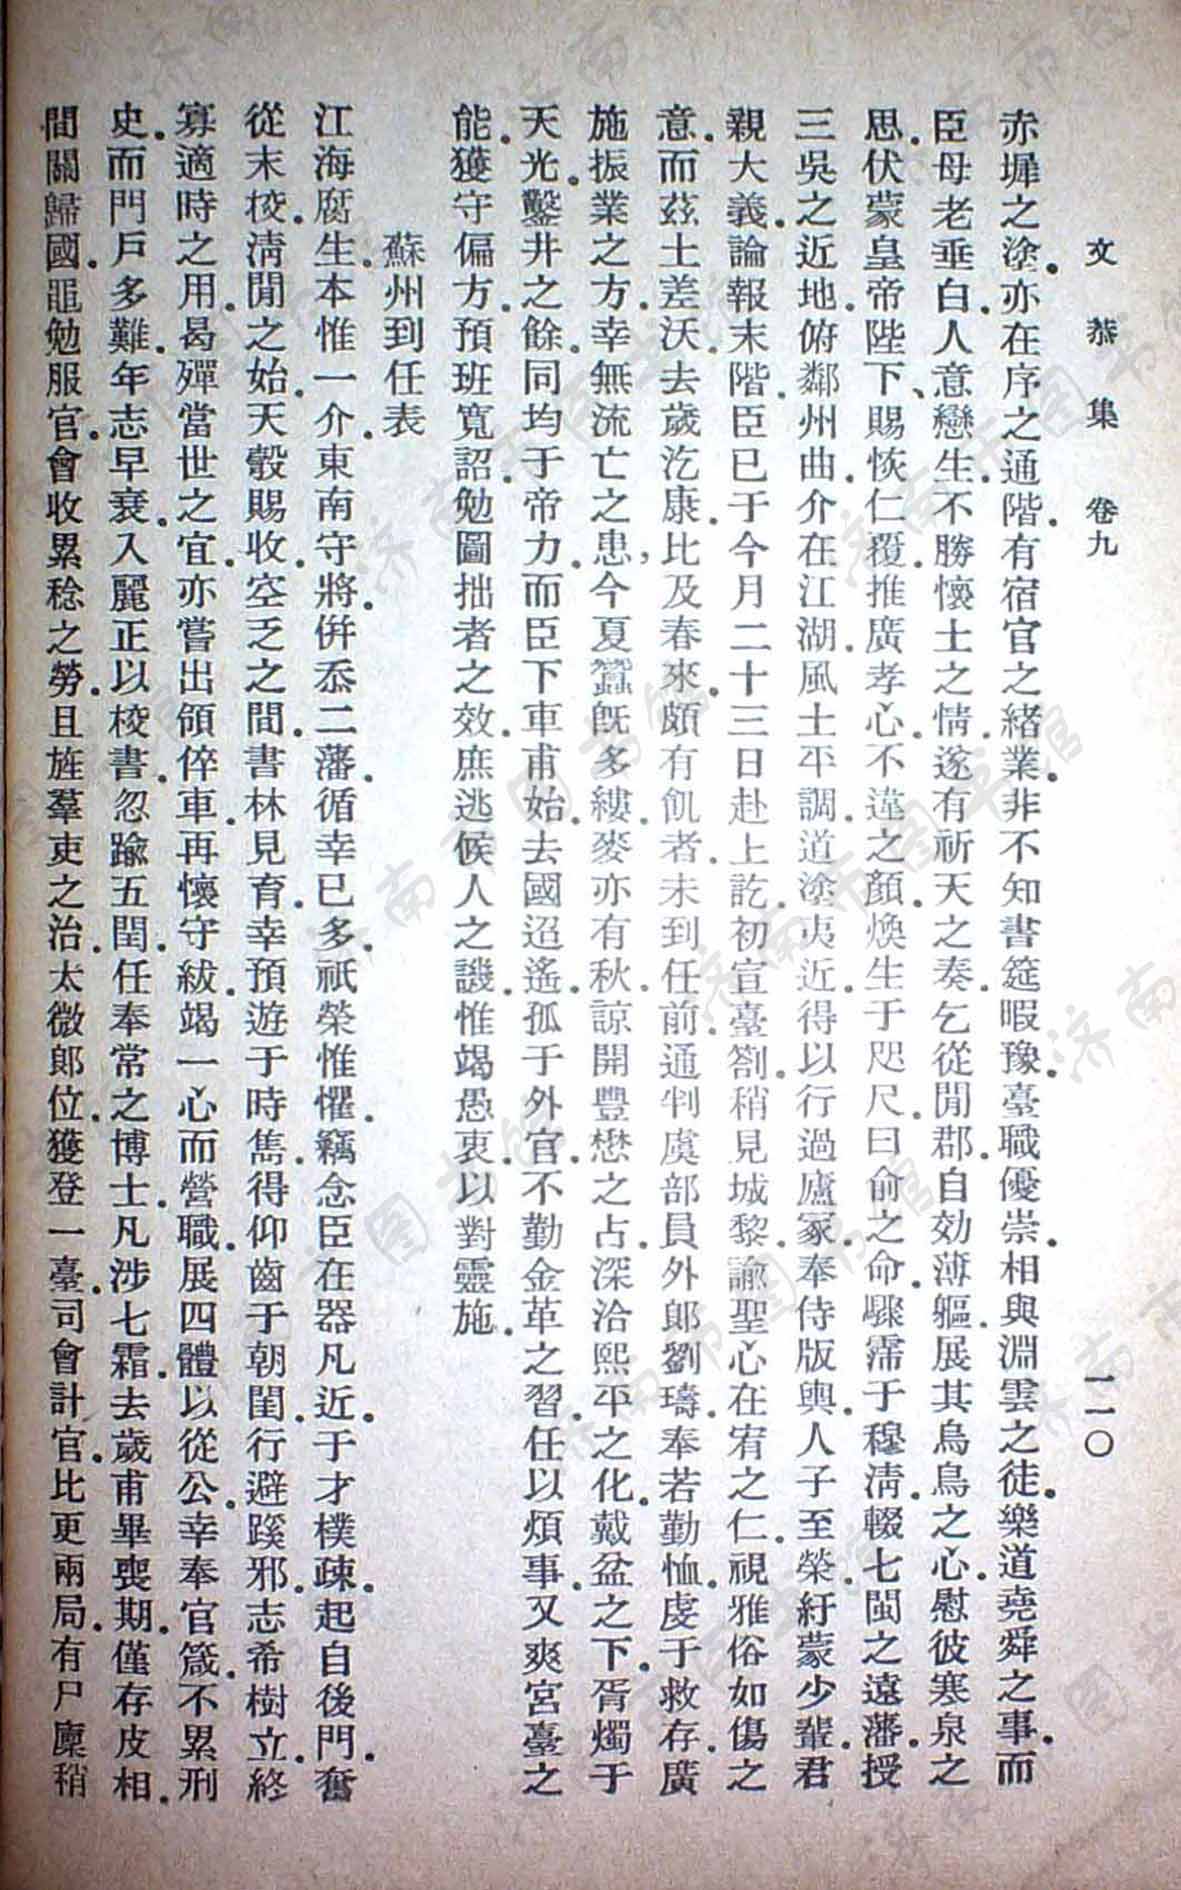 文恭集 卷九 一一〇
赤墀之塗.亦在序之通階.有宿官之緒業.非不知書筵暇豫.臺職優崇.相與淵雲之徒.樂道堯舜之事.而
臣母老垂白.人意戀生.不勝懷土之情.遂有祈天之奏.乞從閒郡.自効薄軀.展其烏鳥之心.慰彼寒泉之
思.伏蒙皇帝陛下、賜恢仁覆.推廣孝心.不違之顏.煥生于咫尺.曰俞之命.驟霈于穆淸.輟七閩之遠藩.授
三吳之近地.俯鄰州曲.介在江湖.風土平調.道塗夷近.得以行過廬冢.奉侍版輿.人子至榮.紆蒙少輩.君
親大義.論報末階.臣已于今月二十三日赴上訖.初宣臺劄.稍見城黎.諭聖心在宥之仁.視雅俗如傷之
意.而茲土差沃.去歲汔康.比及春來.頗有飢者.未到任前.通判虞部員外郞劉璹.奉若勤恤.虔于救存.廣
施振業之方.幸無流亡之患.今夏蠶旣多縷.麥亦有秋.諒開豐懋之占.深洽熙平之化.戴盆之下.胥燭于
天光.鑿井之餘.同均于帝力.而臣下車甫始.去國迢遙.孤于外官.不勤金革之習.任以煩事.又爽宮臺之
能.獲守偏方.預班寬詔.勉圖拙者之效.庶逃候人之譏.惟竭愚衷.以對靈施.
蘇州到任表
江海腐生.本惟一介.東南守將.倂忝二藩.循幸已多.祇榮惟懼.竊念臣在器凡近.于才樸疎.起自後門.奮
從末校.淸閒之始.天穀賜收.空乏之間.書林見育.幸預遊于時雋.得仰齒于朝閨.行避蹊邪.志希樹立.終
寡適時之用.曷殫當世之宜.亦嘗出領倅車.再懷守紱.竭一心而營職.展四體以從公.幸奉官箴.不累刑
史.而門戶多難.年志早衰.入麗正以校書.忽踰五閏.任奉常之博士.凡涉七霜.去歲甫畢喪期.僅存皮相.
間關歸國.黽勉服官.會收累稔之勞.且旌羣吏之治.太微郞位.獲登一臺.司會計官.比更兩局.有尸廩稍